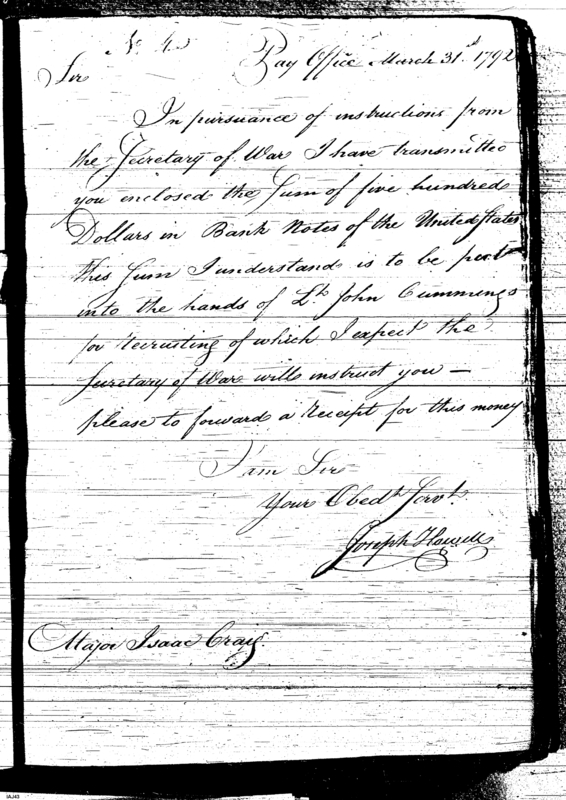 No. 4
Pay Office March 31st 1792
Sir
In pursuance of instructions from
the Secretary of War I have transmitted
you enclosed the Sum of five hundred
Dollars in Bank Notes of the United States
this Sum I understand is to be put
into the hands of Lt. John Cummings
for recruiting of which I expect the
Secretary of War will instruct you —
please to forward a receipt for this money
I am Sir
Your Obedt. Servt.
Joseph Howell
Major Isaac Craig
IAJ43